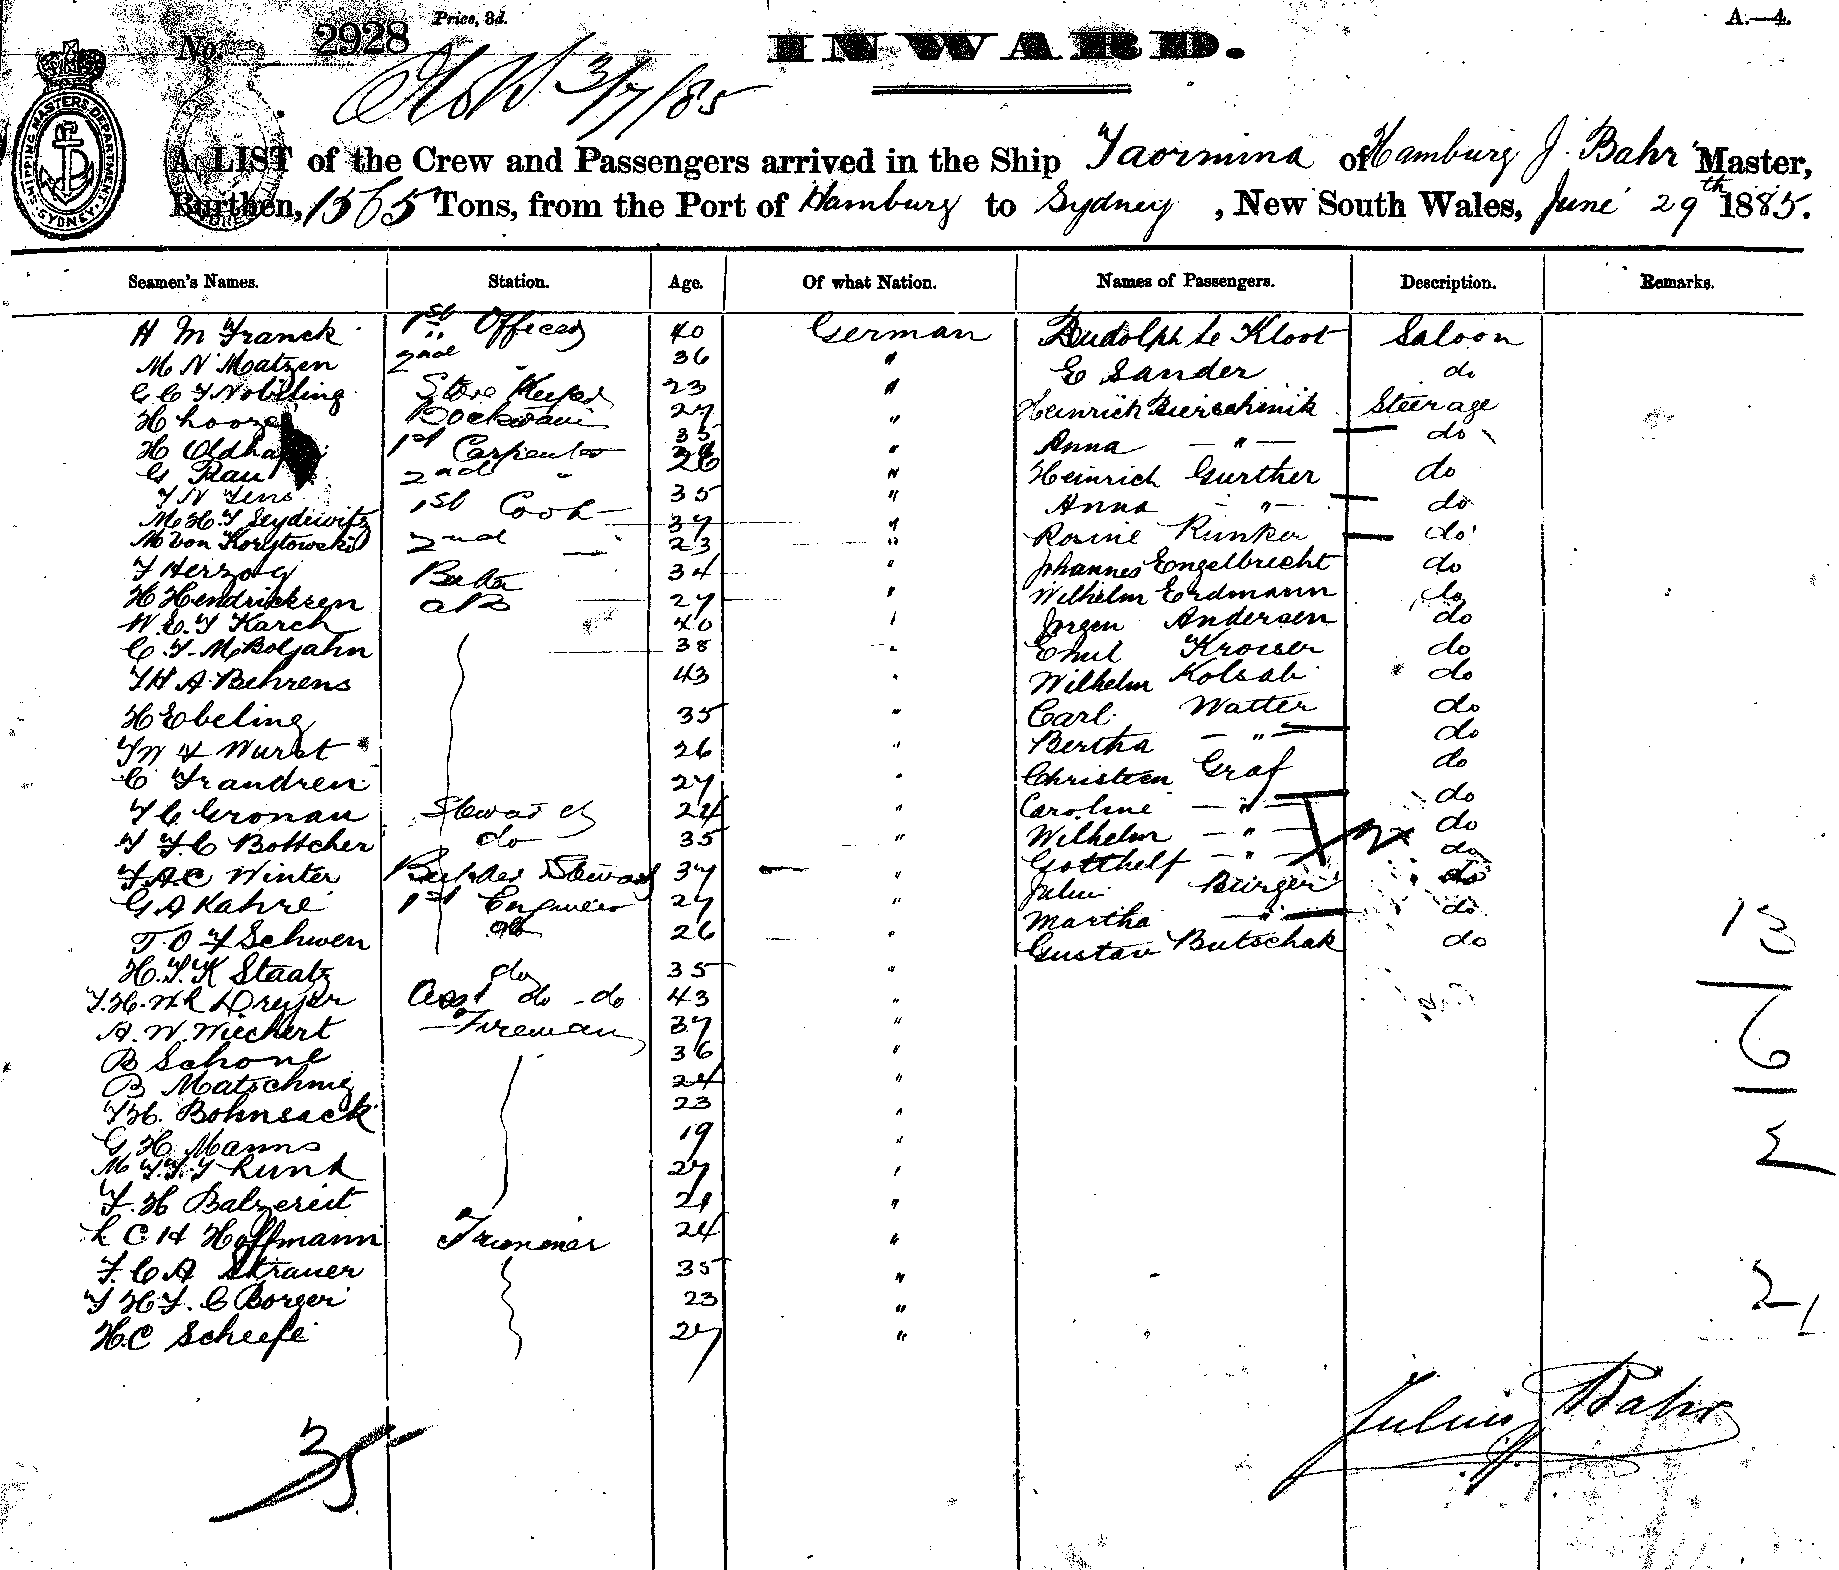 No. 2928 Price, 3d. A.—4.
INWARD.
3/7/85
SHIPPING MASTERS DEPARTMENT SYDNEY
A LIST of the Crew and Passengers arrived in the Ship Taormina of Hamburg J. Bahr Master,
Burthen, 1565 Tons, from the Port of Hamburg to Sydney, New South Wales, June 29th 1885.
Seamen's Names. Station. Age. Of what Nation. Names of Passengers. Description. Remarks.
H M Franck 1st Officer 40 German Rudolph te Kloot Saloon
M N Matzen 2nd " 36 " E Sander do
C C F Nobiling Store Keeper 23 " Heinrich Steerage
H 27 " Anna — " — do
H 1st Carpenter 35 " Heinrich Gurther do
G Rau 2nd " 26 " Anna — " — do
F N Jens 1st Cook 35 " Rosine Runker do
M H F Seydewitz 37 " Johannes Engelbrecht do
M von Korytowski 2nd 23 " Wilhelm Erdmann do
F Herzog 34 " Jorgen Andersen do
H Hendricksen AB 27 " Emil do
W. E. F Karch 40 " Wilhelm do
C. F. M Boljahn 38 " Carl Watter do
F H A Behrens 43 " Bertha — " — do
H Ebeling 35 " Christian Graf do
F W F Wurst 26 " Caroline — " — do
C Frandren 27 " Wilhelm — " — do
F C Gronau Steward 24 " Gotthelf — " — do
F F C Bottcher do 35 " Julius Bürger do
F A C Winter Steward 37 " Martha — " — do
G A Kahre 1st Engineer 27 " Gustav Butschak do
T. O F Schwen do 26 "
H. F. K Staatz do 35 "
F. H. W R Dreyer Asst do - do 43 "
A. W. Wiechert Fireman 37 "
B Schone 36 "
B Matschnig 24 "
F H. Bohnsack 23 "
G H Manns 19 "
M F. F. F Lunk 27 "
F. H Balzereit 21 "
L C H Hoffmann Trimmer 24 "
F. C A Strauer 35 "
F H F. C Borger 23 "
H. C Scheefe 27 "
13
6
2
21
35
Julius Bahr